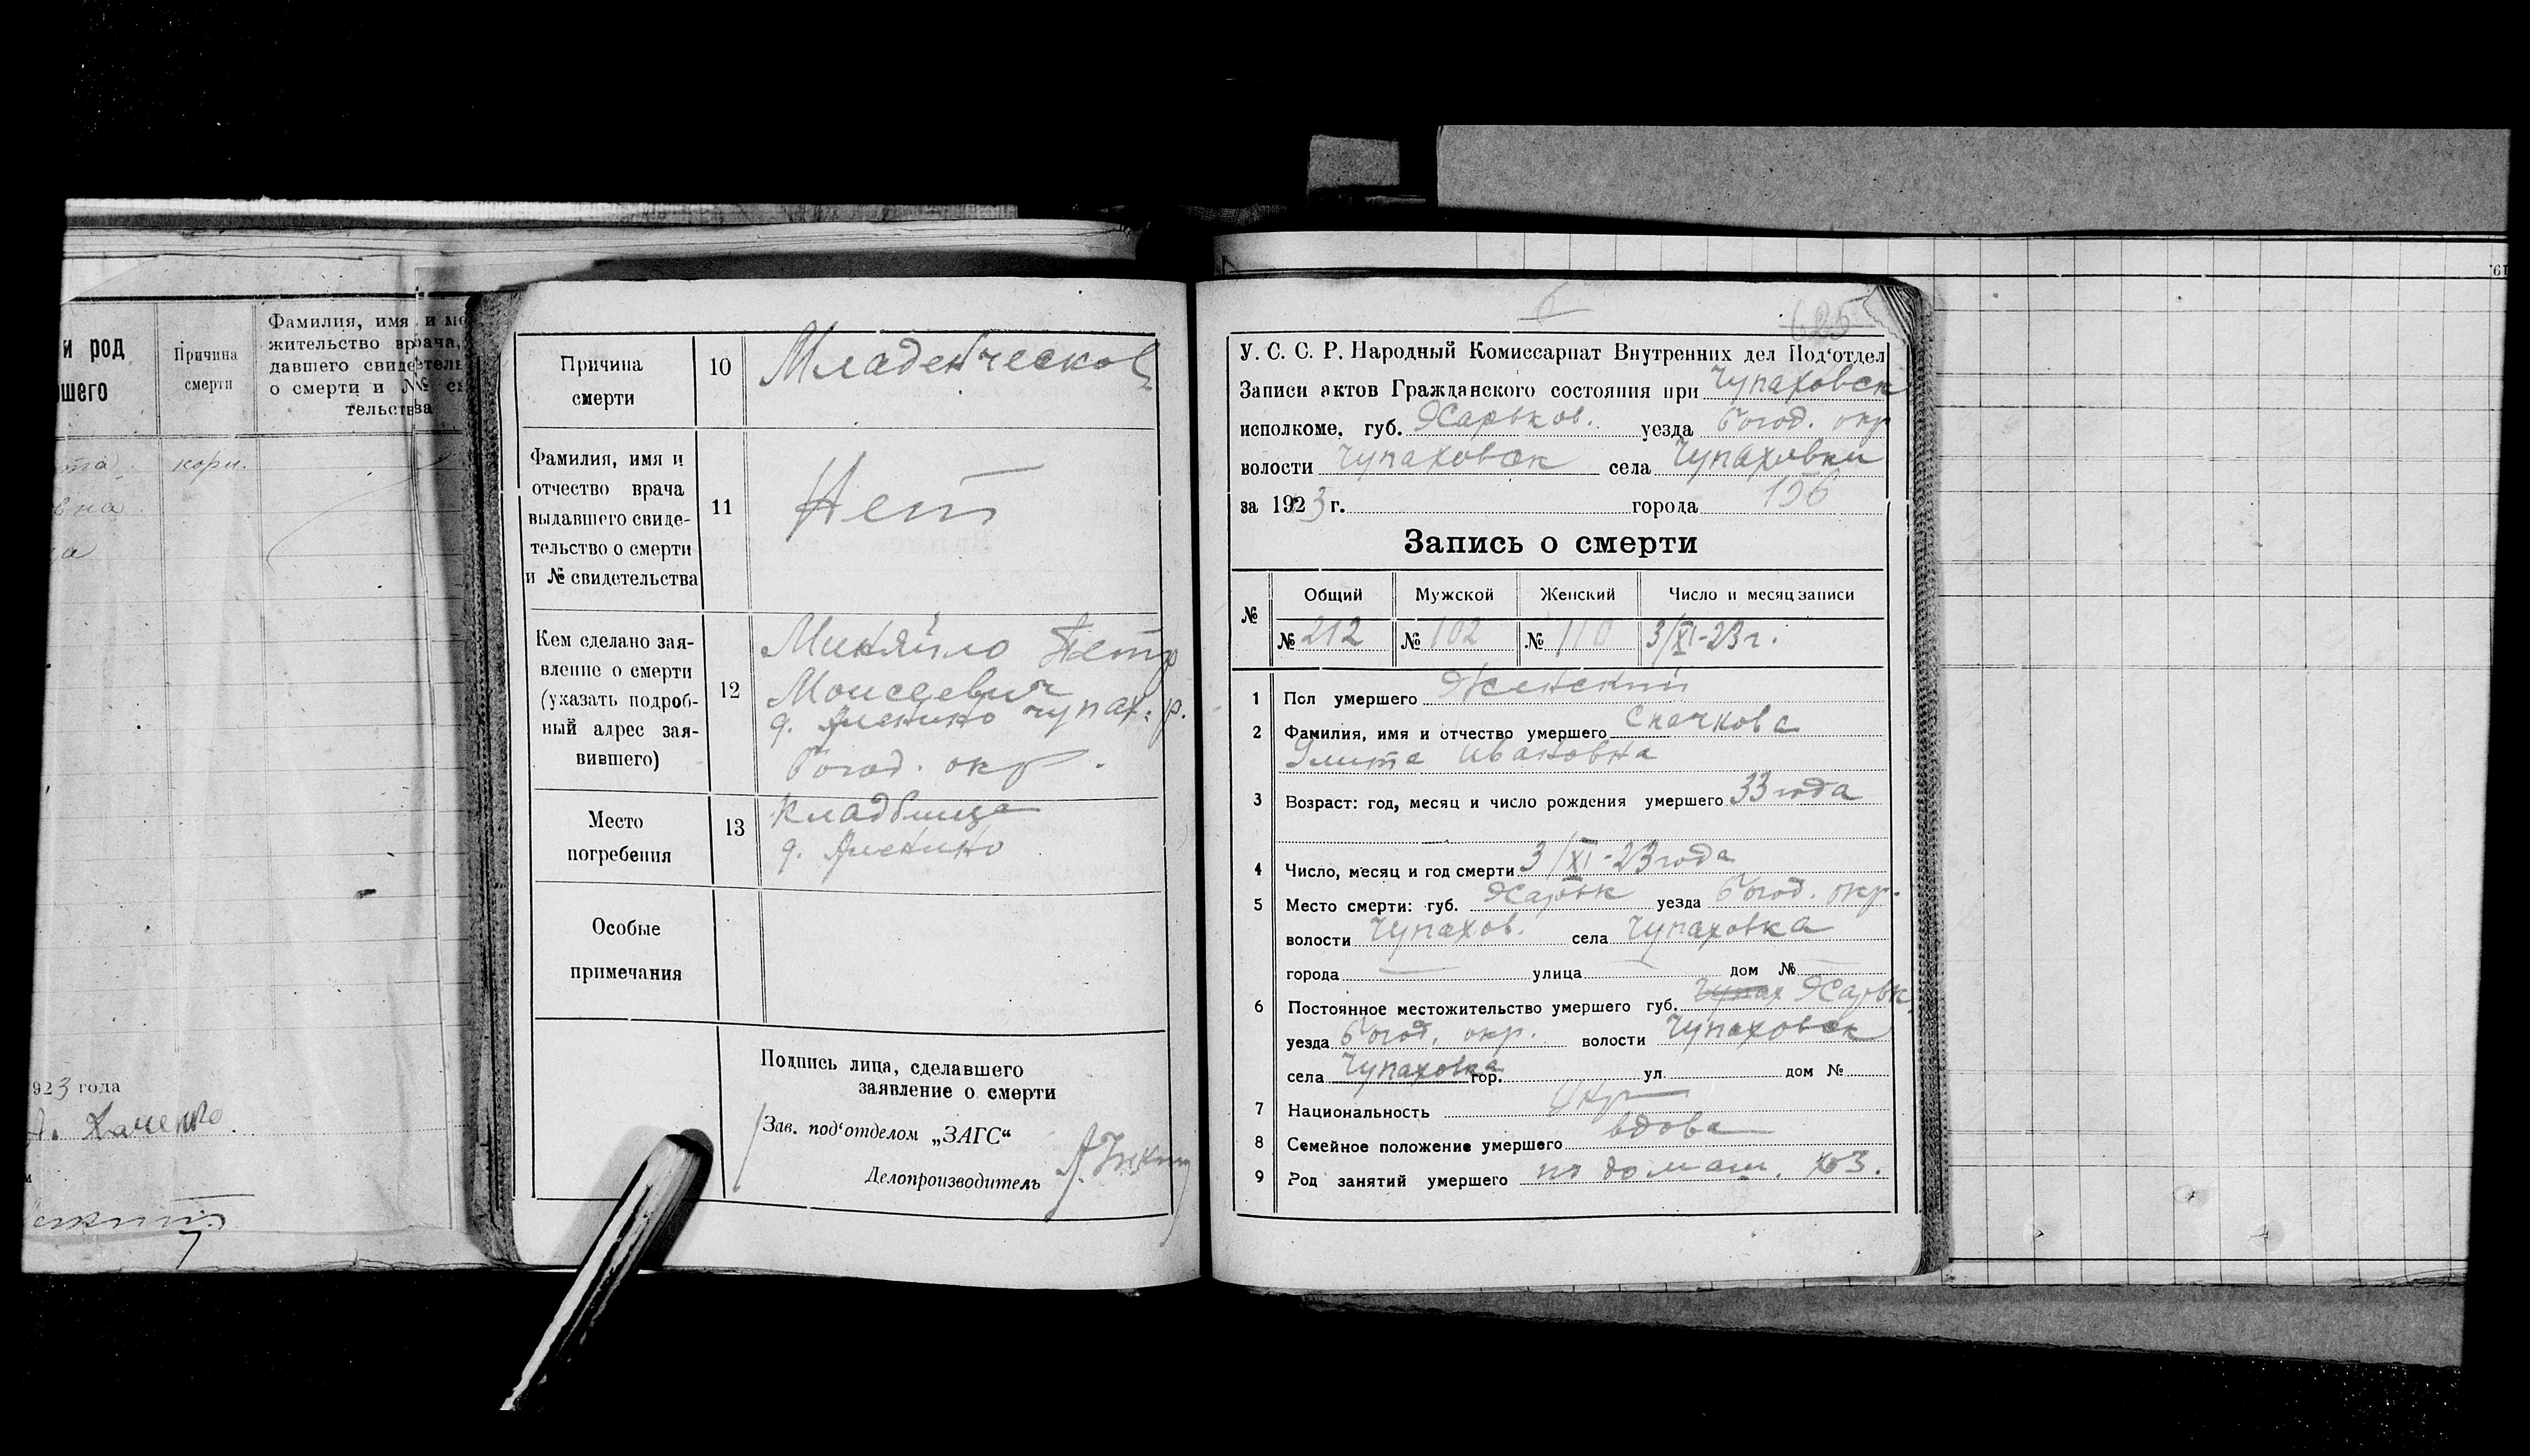 и род
шего
Причина
смерти
Фамилия, имя и ме
жительство врача,
давшего свидетель
о смерти и №№ св
тельства
кори.
вна
923 года
Причина
смерти
10
Младенческов
Фамилия, имя и
отчество врача
выдавшего свиде-
тельство о смерти
и № свидетельства
11
Нет
Кем сделано зая-
вление о смерти
(указать подроб-
ный адрес зая-
вившего)
12
Миняйло Петр
Моисеевич
д. чупах. р.
Богод. окр.
Место
погребения
13
Кладбища
д.
Особые
примечания
Подпись лица, сделавшего
заявление о смерти
Зав. под‘отделом „ЗАГС“
Делопроизводитель
6
625
У. С. С. Р. Народный Комиссариат Внутренних дел Под‘отдел
Записи актов Гражданского состояния при Чупаховск
исполкоме, губ. Харьков. уезда Богод. окр
волости Чупаховск села Чупаховки
за 1923 г. города 196
Запись о смерти
№ Общий Мужской Женский Число и месяц записи
№ 212 № 102 № 110 3/XI-23 г.
1 Пол умершего Женский
2 Фамилия, имя и отчество умершего
Ивановна
3 Возраст: год, месяц и число рождения умершего 33 года
4 Число, месяц и год смерти 3/XI-23 года
5 Место смерти: губ. Харьк уезда Богод. окр.
волости Чупахов. села Чупаховка
города — улица — дом № —
6 Постоянное местожительство умершего губ. Чупах Харьк
уезда Богод. окр. волости Чупаховск
села Чупаховка гор. ул. дом №
7 Национальность Укр
8 Семейное положение умершего вдова
9 Род занятий умершего по домаш. хоз.